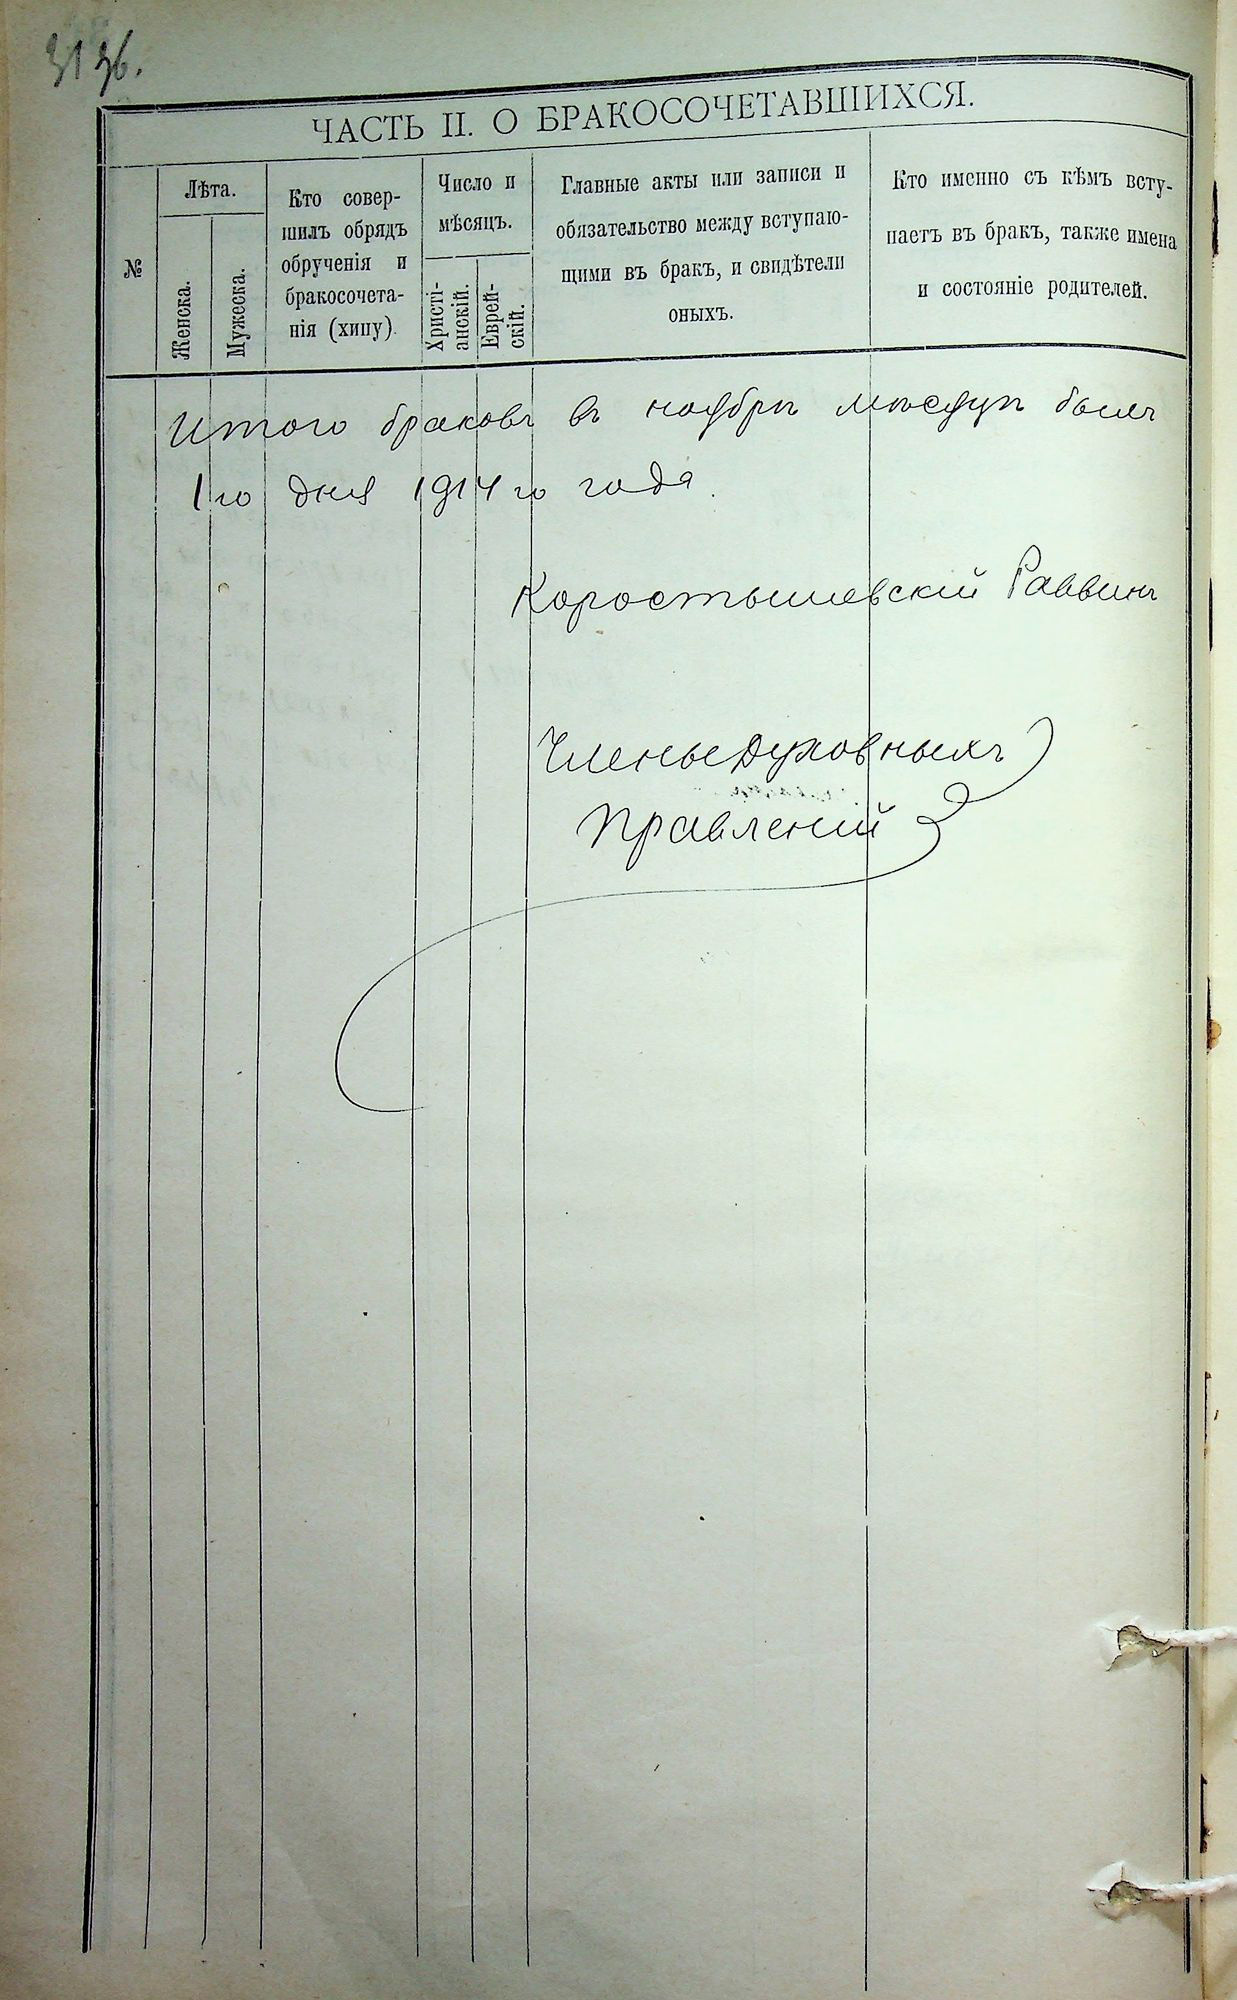 3136.
ЧАСТЬ II. О БРАКОСОЧЕТАВШИХСЯ.
№
Лѣта.
Женска.
Мужеска.
Кто совер-
шилъ обрядъ
обрученія и
бракосочета-
нія (хипу).
Число и
мѣсяцъ.
Христі-
анскій.
Еврей-
скій.
Главные акты или записи и
обязательство между вступаю-
щими въ бракъ, и свидѣтели
оныхъ.
Кто именно съ кѣмъ всту-
паетъ въ бракъ, также имена
и состояніе родителей.
Итого браковъ въ ноябрѣ мѣсяцѣ былъ
1го дня 1914го года
Коростышевскій Раввинъ
Члены духовныхъ
Правленій